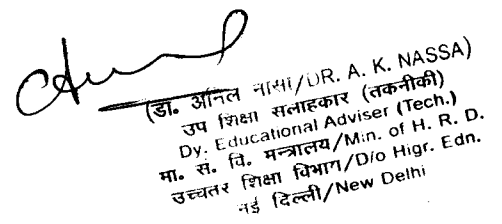 (डा. अनिल नासा/DR. A. K. NASSA)
उप शिक्षा सलाहकार (तकनीकी)
Dy. Educational Adviser (Tech.)
मा. सं. वि. मन्त्रालय/Min. of H. R. D.
उच्चतर शिक्षा विभाग/D/o Higr. Edn.
नई दिल्ली/New Delhi